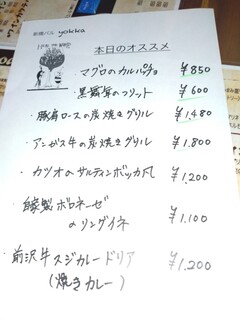 新橋バル yokka
本日のオススメ
・マグロのカルパッチョ ¥850
・黒霧島のフリット ¥600
・豚肩ロースの炭焼きグリル ¥1,480
・アンガス牛の炭焼きグリル ¥1,800
・カツオのサルティンボッカ風 ¥1,200
・自家製ボロネーゼ
のリングイネ ¥1,100
・前沢牛スジカレードリア
(焼きカレー) ¥1,200